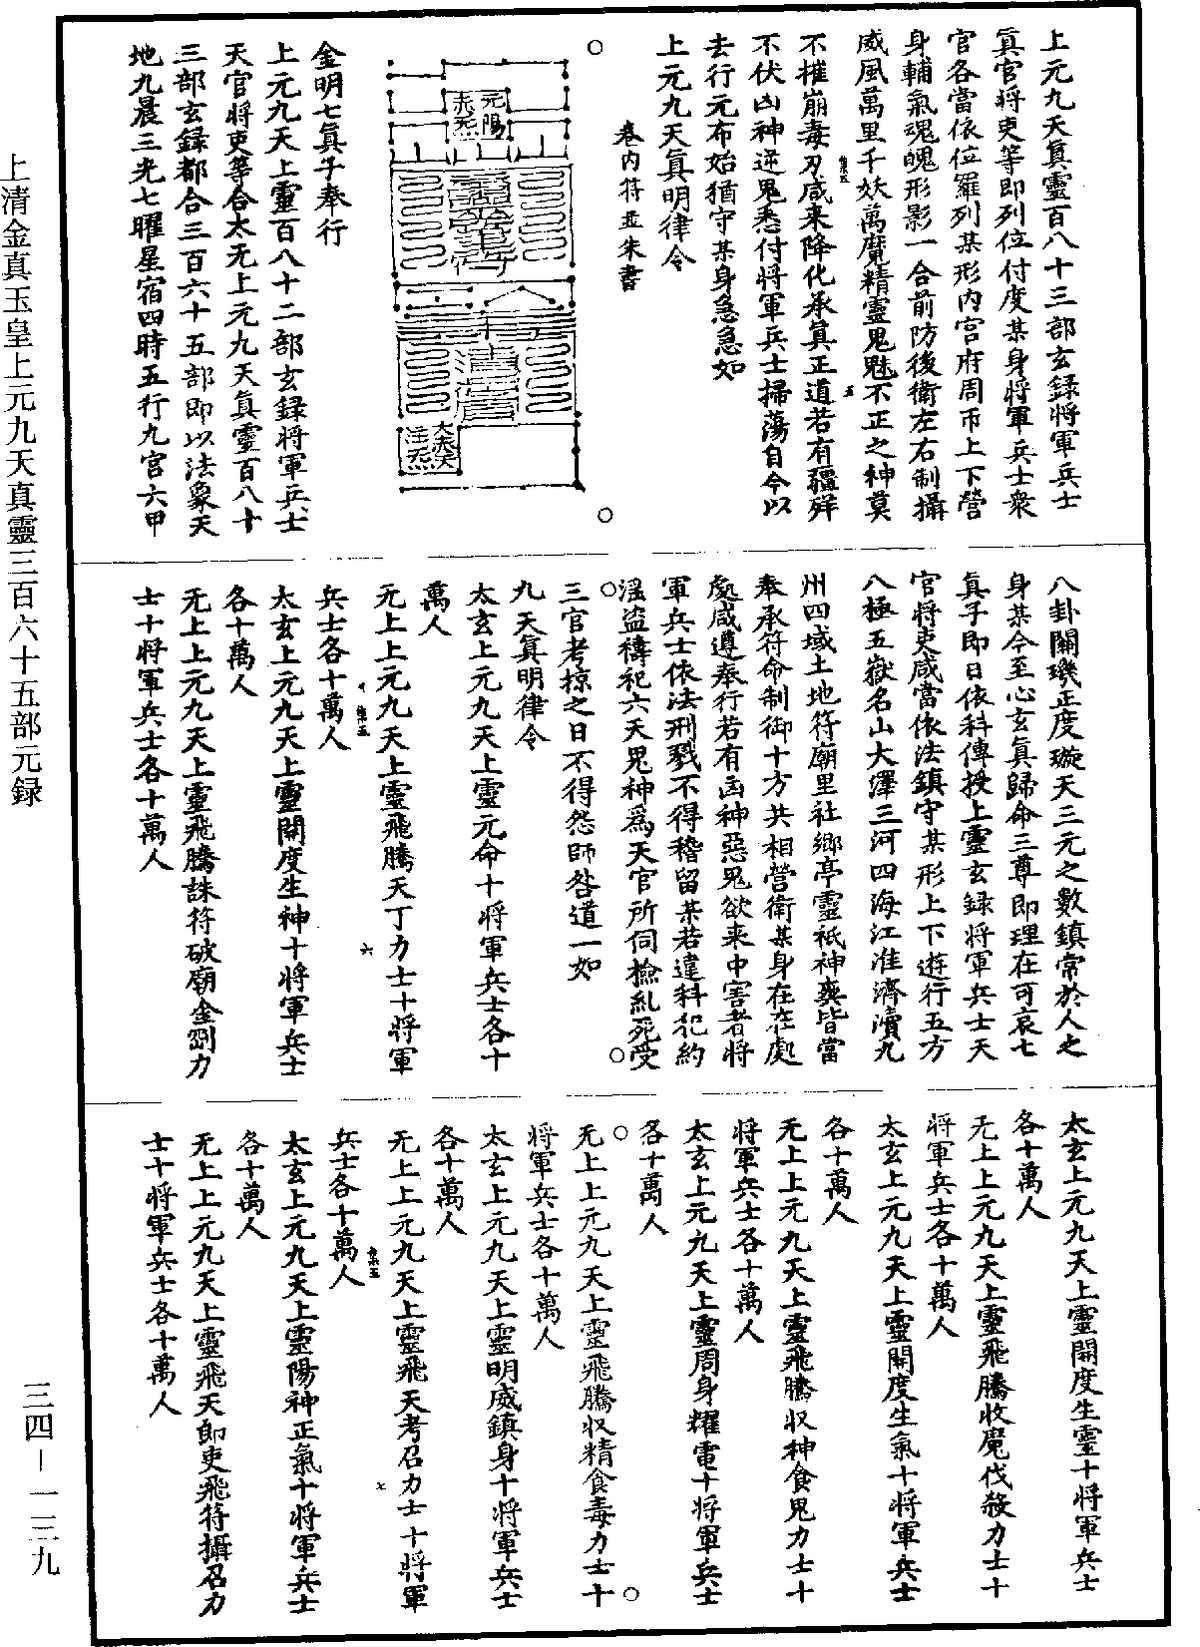 上元九天真靈百八十三部玄録將軍兵士
真官將吏等即列位付度某身將軍兵士衆
官各當依位羅列某形内宫府周帀上下營
身輔氣魂魄形影一合前防後衛左右制攝
威風萬里千妖萬魔精靈鬼魅不正之神莫
不摧崩毒刃咸来降化承真正道若有彊殍
不伏凶神逆鬼悉付將軍兵士掃蕩自今以
去行元布始猶守某身急急如
上元九天真明律令
卷内符並朱書
元陽
赤炁
金明七真子奉行
上元九天上靈百八十二部玄録將軍兵士
天官將吏等合太无上元九天真靈百八十
三部玄録都合三百六十五部即以法象天
地九晨三光七曜星宿四時五行九宫六甲
八卦關璣正度璇天三元之數鎮常於人之
身某今至心玄真歸命三尊即理在可哀七
真子即日依科傳授上靈玄録將軍兵士天
官將吏咸當依法鎮守某形上下遊行五方
八極五嶽名山大澤三河四海江淮濟瀆九
州四域土地符廟里社鄉亭靈祇神㚖皆當
奉承符命制御十方共相營衛某身在在處
處咸遵奉行若有凶神惡鬼欲来中害者將
軍兵士依法刑戮不得稽留某若違科犯約
淫盜禱祀六天鬼神爲天官所伺撿糺死受
三官考掠之日不得怨師咎道一如
九天真明律令
太玄上元九天上靈元命十將軍兵士各十
萬人
元上上元九天上靈飛騰天丁力士十將軍
兵士各十萬人
太玄上元九天上靈開度生神十將軍兵士
各十萬人
无上上元九天上靈飛騰誅符破廟金剛力
士十將軍兵士各十萬人
太玄上元九天上靈開度生靈十將軍兵士
各十萬人
无上上元九天上靈飛騰收魔伐殺力士十
將軍兵士各十萬人
太玄上元九天上靈開度生氣十將軍兵士
各十萬人
无上上元九天上靈飛騰収神食鬼力士十
將軍兵士各十萬人
太玄上元九天上靈周身耀電十將軍兵士
各十萬人
无上上元九天上靈飛騰収精食毒力士十
將軍兵士各十萬人
太玄上元九天上靈明威鎮身十將軍兵士
各十萬人
无上上元九天上靈飛天考召力士十將軍
兵士各十萬人
太玄上元九天上靈陽神正氣十將軍兵士
各十萬人
无上上元九天上靈飛天即吏飛符攝召力
士十將軍兵士各十萬人
上清金真玉皇上元九天真靈三百六十五部元録
三四－一三九